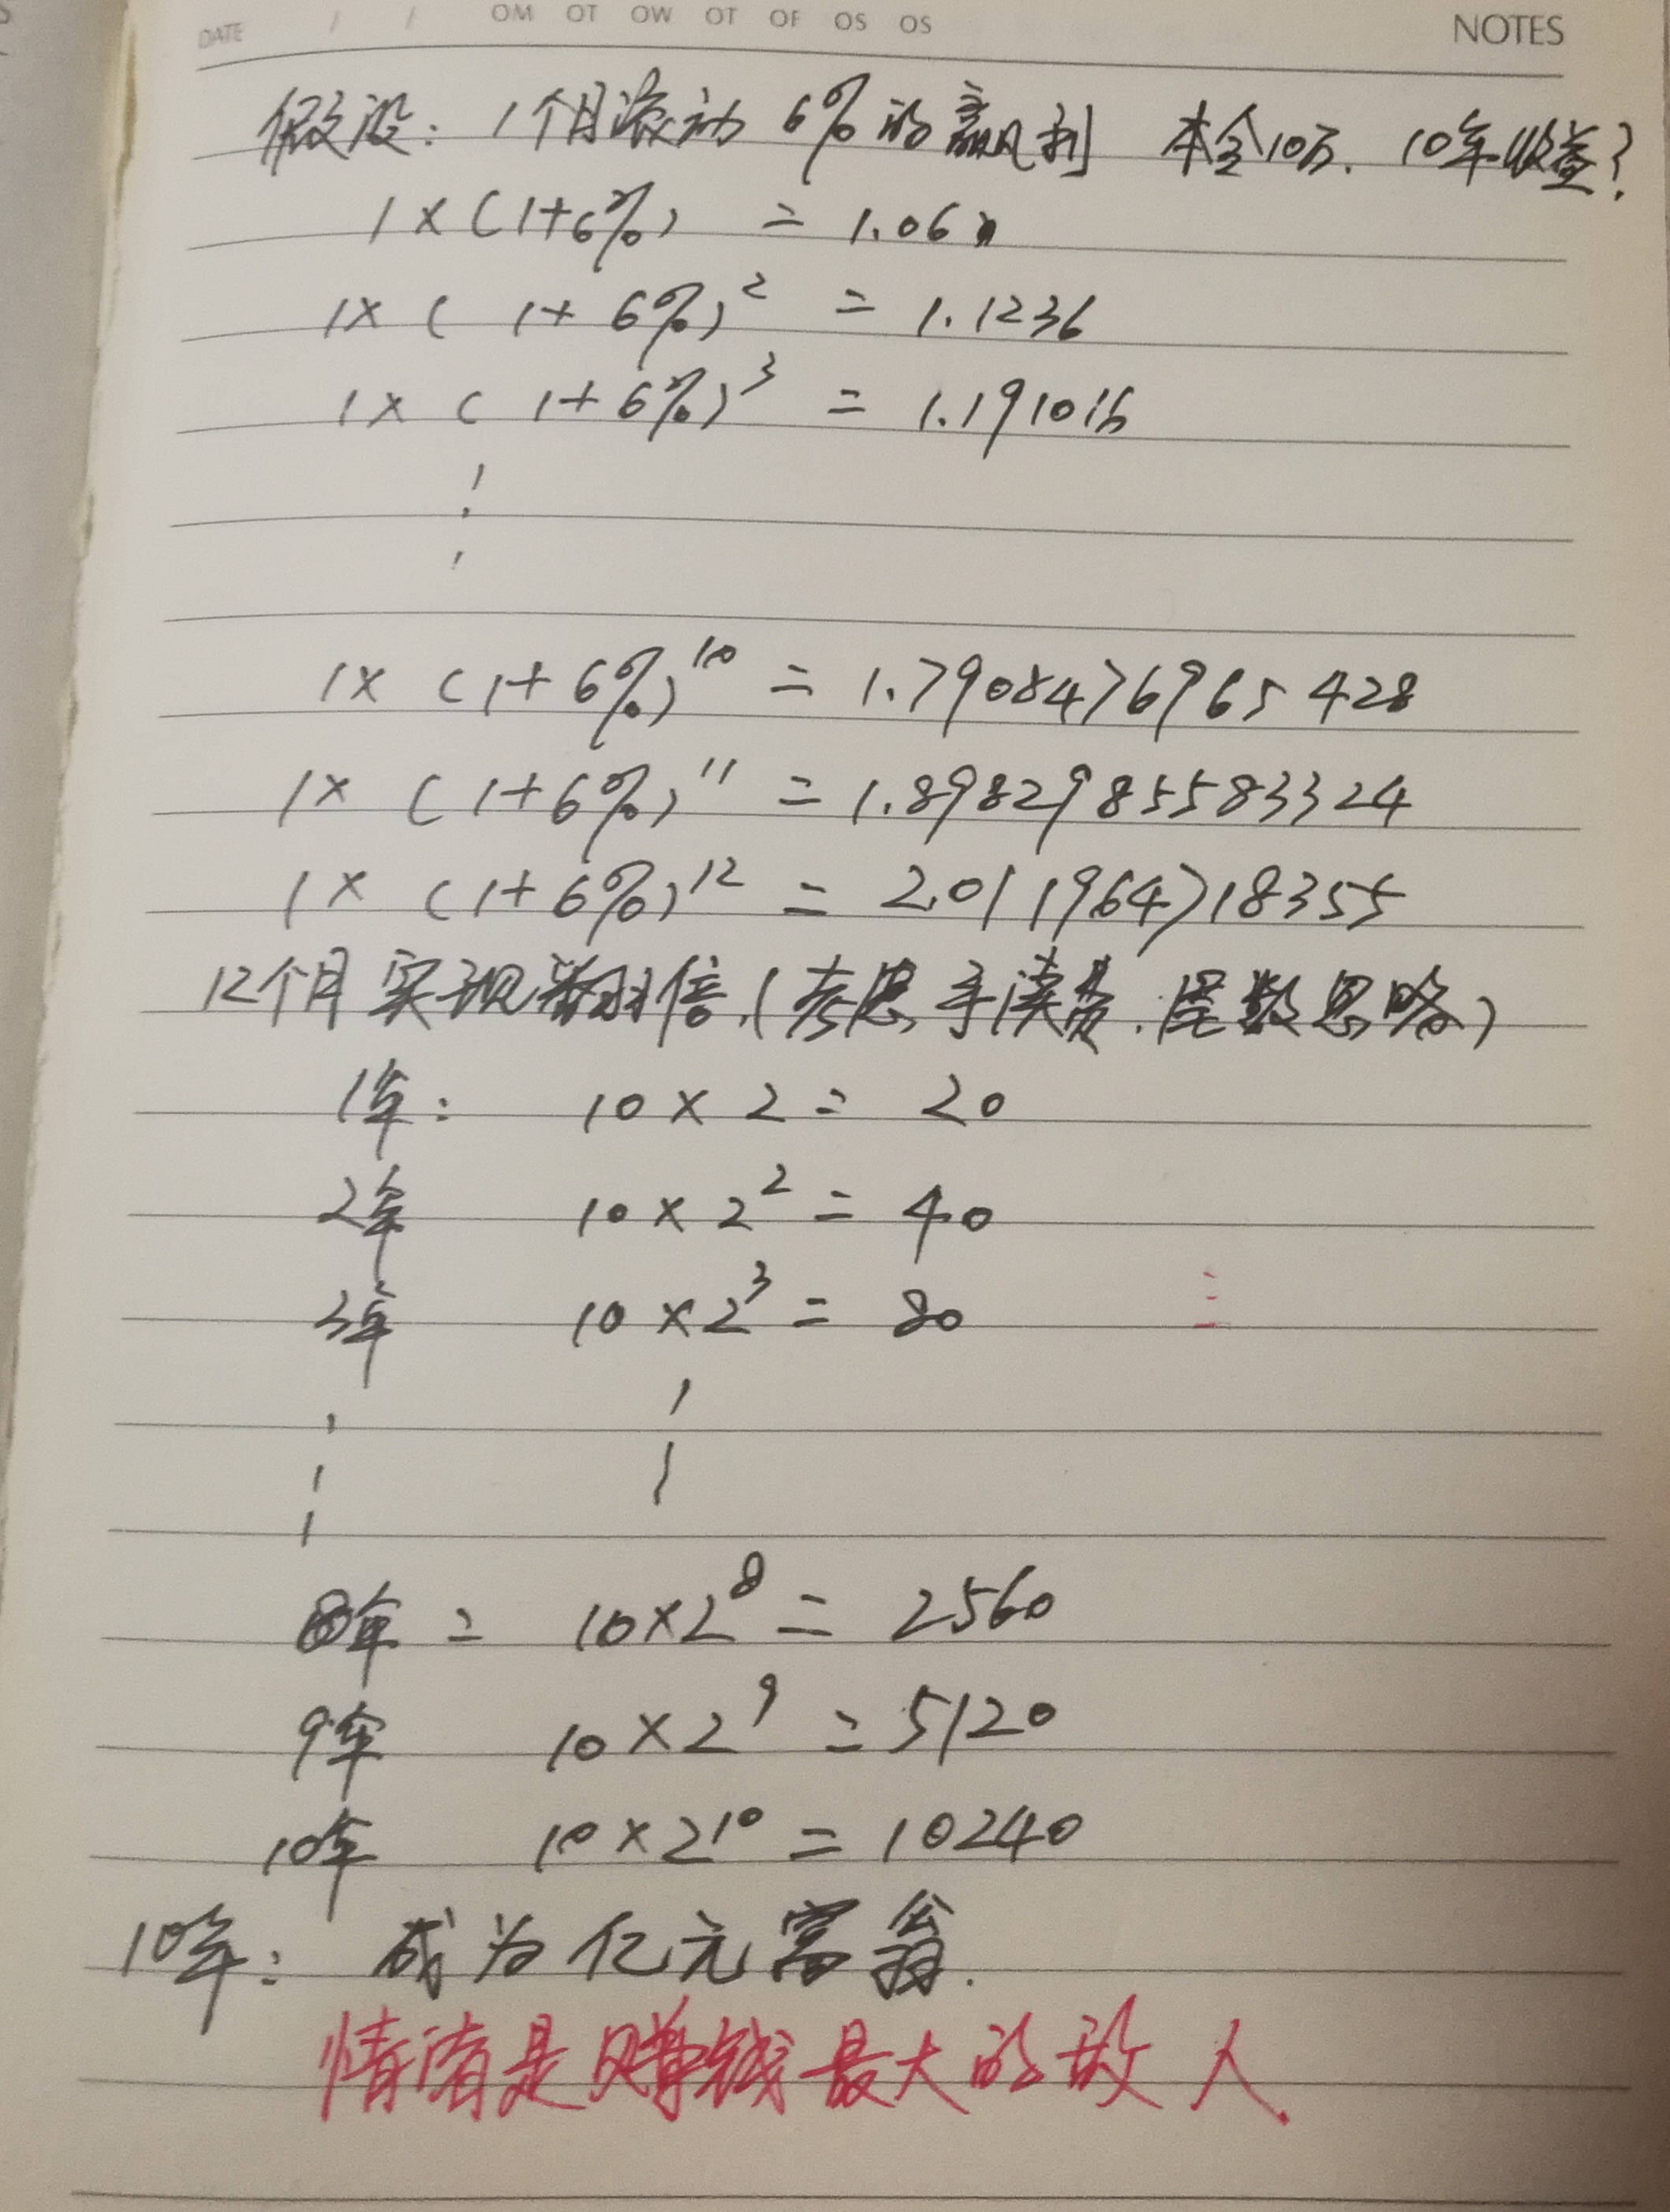 DATE / / OM OT OW OT OF OS OS NOTES
假设: 1个月滚动 6%的赢利 本金10万. 10年收益?
1×(1+6%) = 1.06
1×(1+6%)² = 1.1236
1×(1+6%)³ = 1.191016
1×(1+6%)¹⁰ = 1.7908476965428
1×(1+6%)¹¹ = 1.8982985583324
1×(1+6%)¹² = 2.011964718355
12个月实现翻倍.(考虑手续费.尾数忽略)
1年: 10×2= 20
2年 10×2²= 40
3年 10×2³= 80
8年= 10×2⁸= 2560
9年 10×2⁹=5120
10年 10×2¹⁰=10240
10年: 成为亿元富翁.
情绪是赚钱最大的敌人.